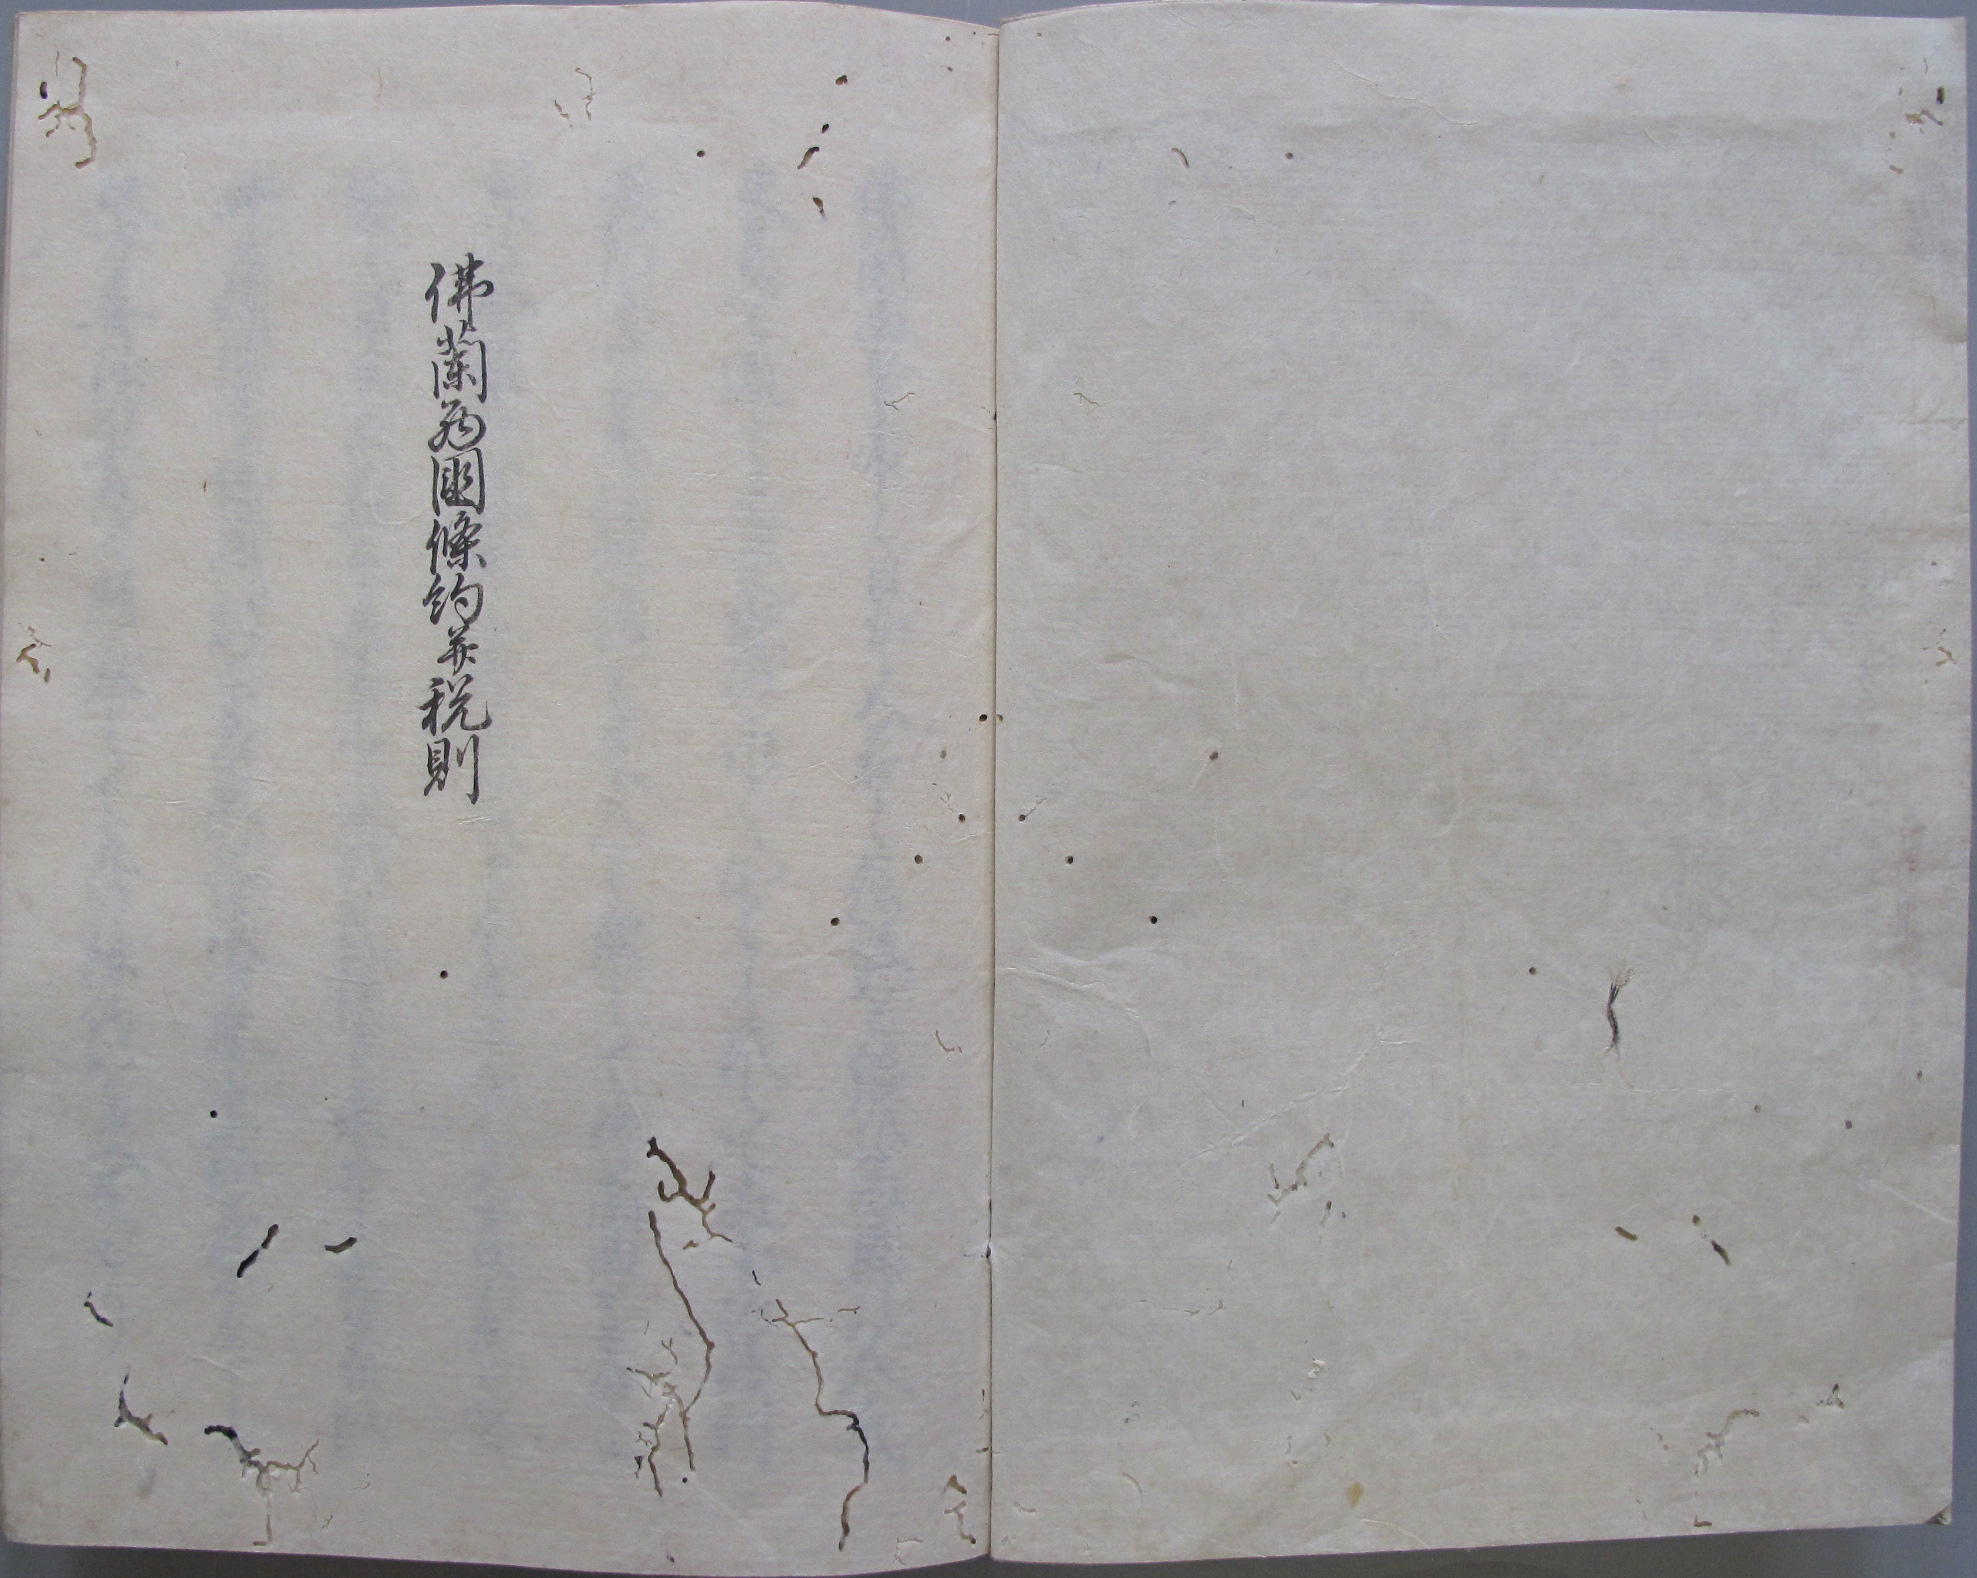 佛蘭西國條約并税則